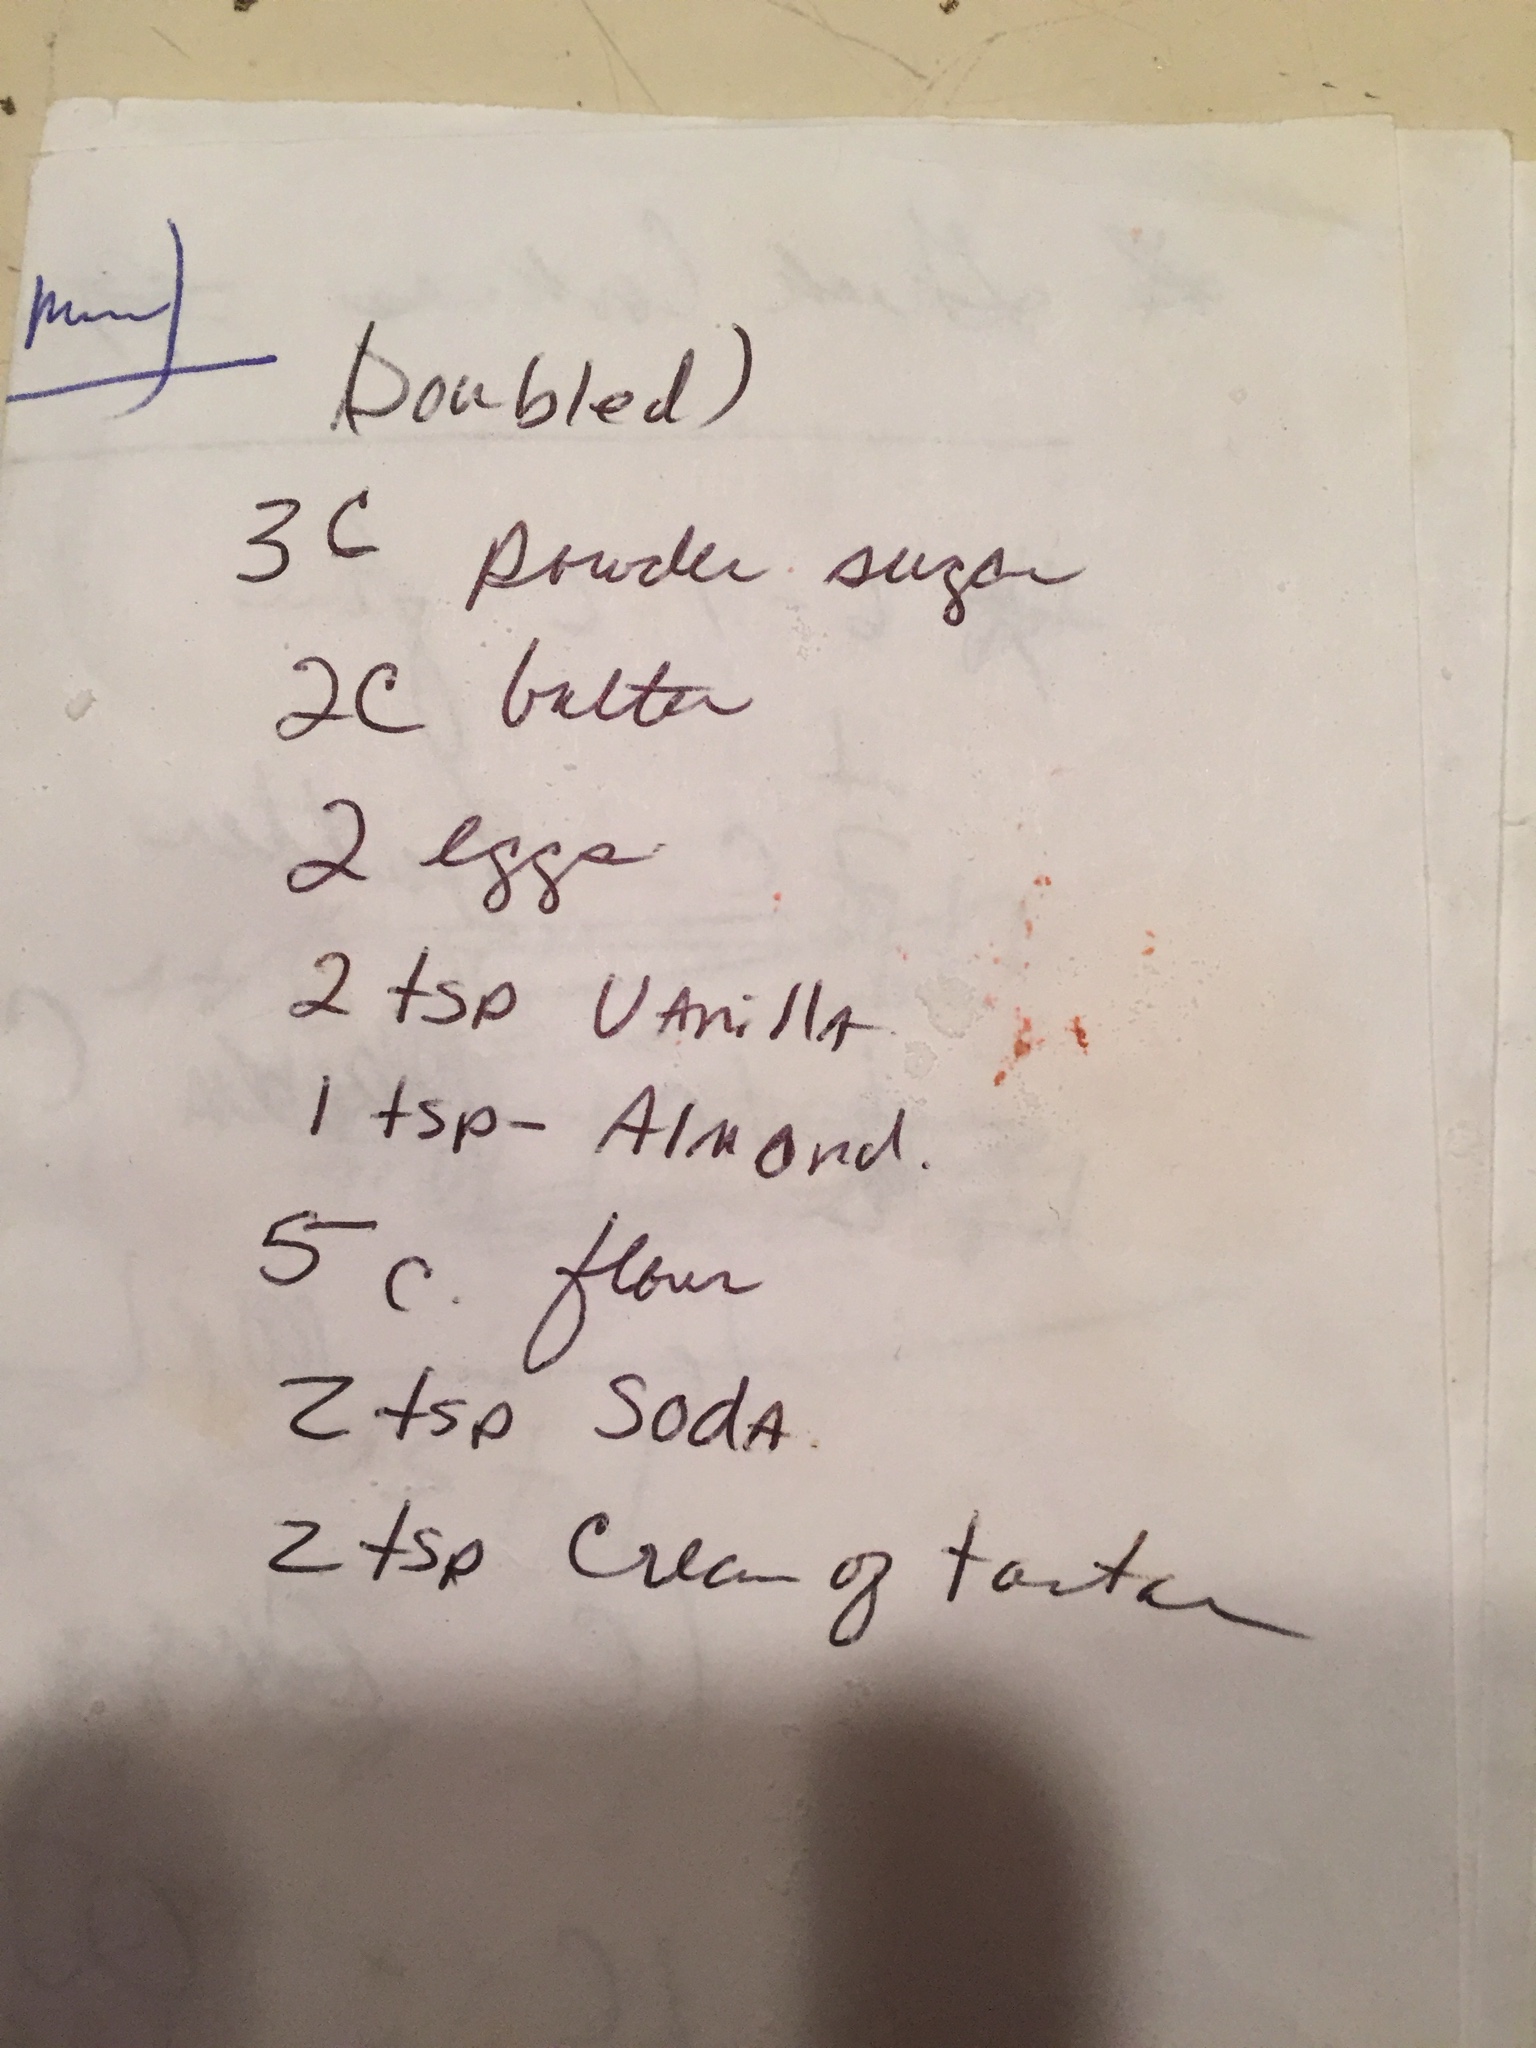 Mom)
Doubled)
3C powder sugar
2C butter
2 eggs
2 tsp VAnillA
1 tsp- Almond.
5 c. flour
2 tsp SodA
2 tsp Cream of tartar